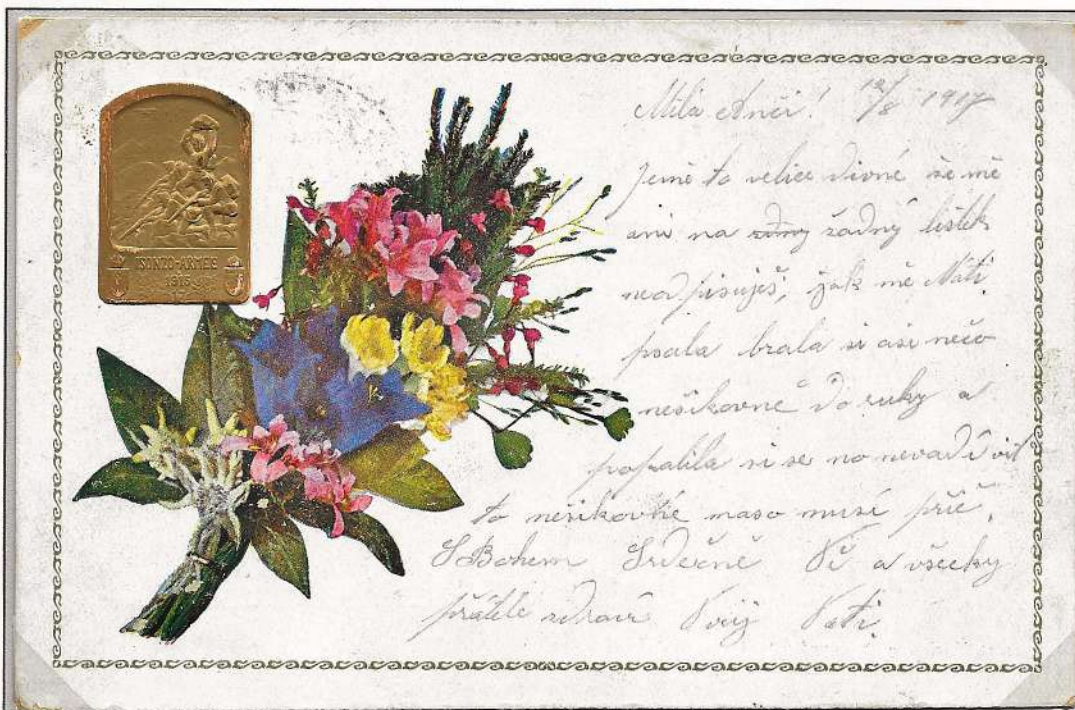 ISONZO-ARMEE
1915
Milá Anči! 12/8 1917
Jemě to velice divné že mě
ani na žádný lístek
neodpisuješ, jak mě Máti
psala brala si asi něco
nešikovně do ruky a
popálila si se no nevadí viť
to nešikovné maso musí přič.
S Bohem Srdečně Tě a všecky
přátele zdraví Tvůj